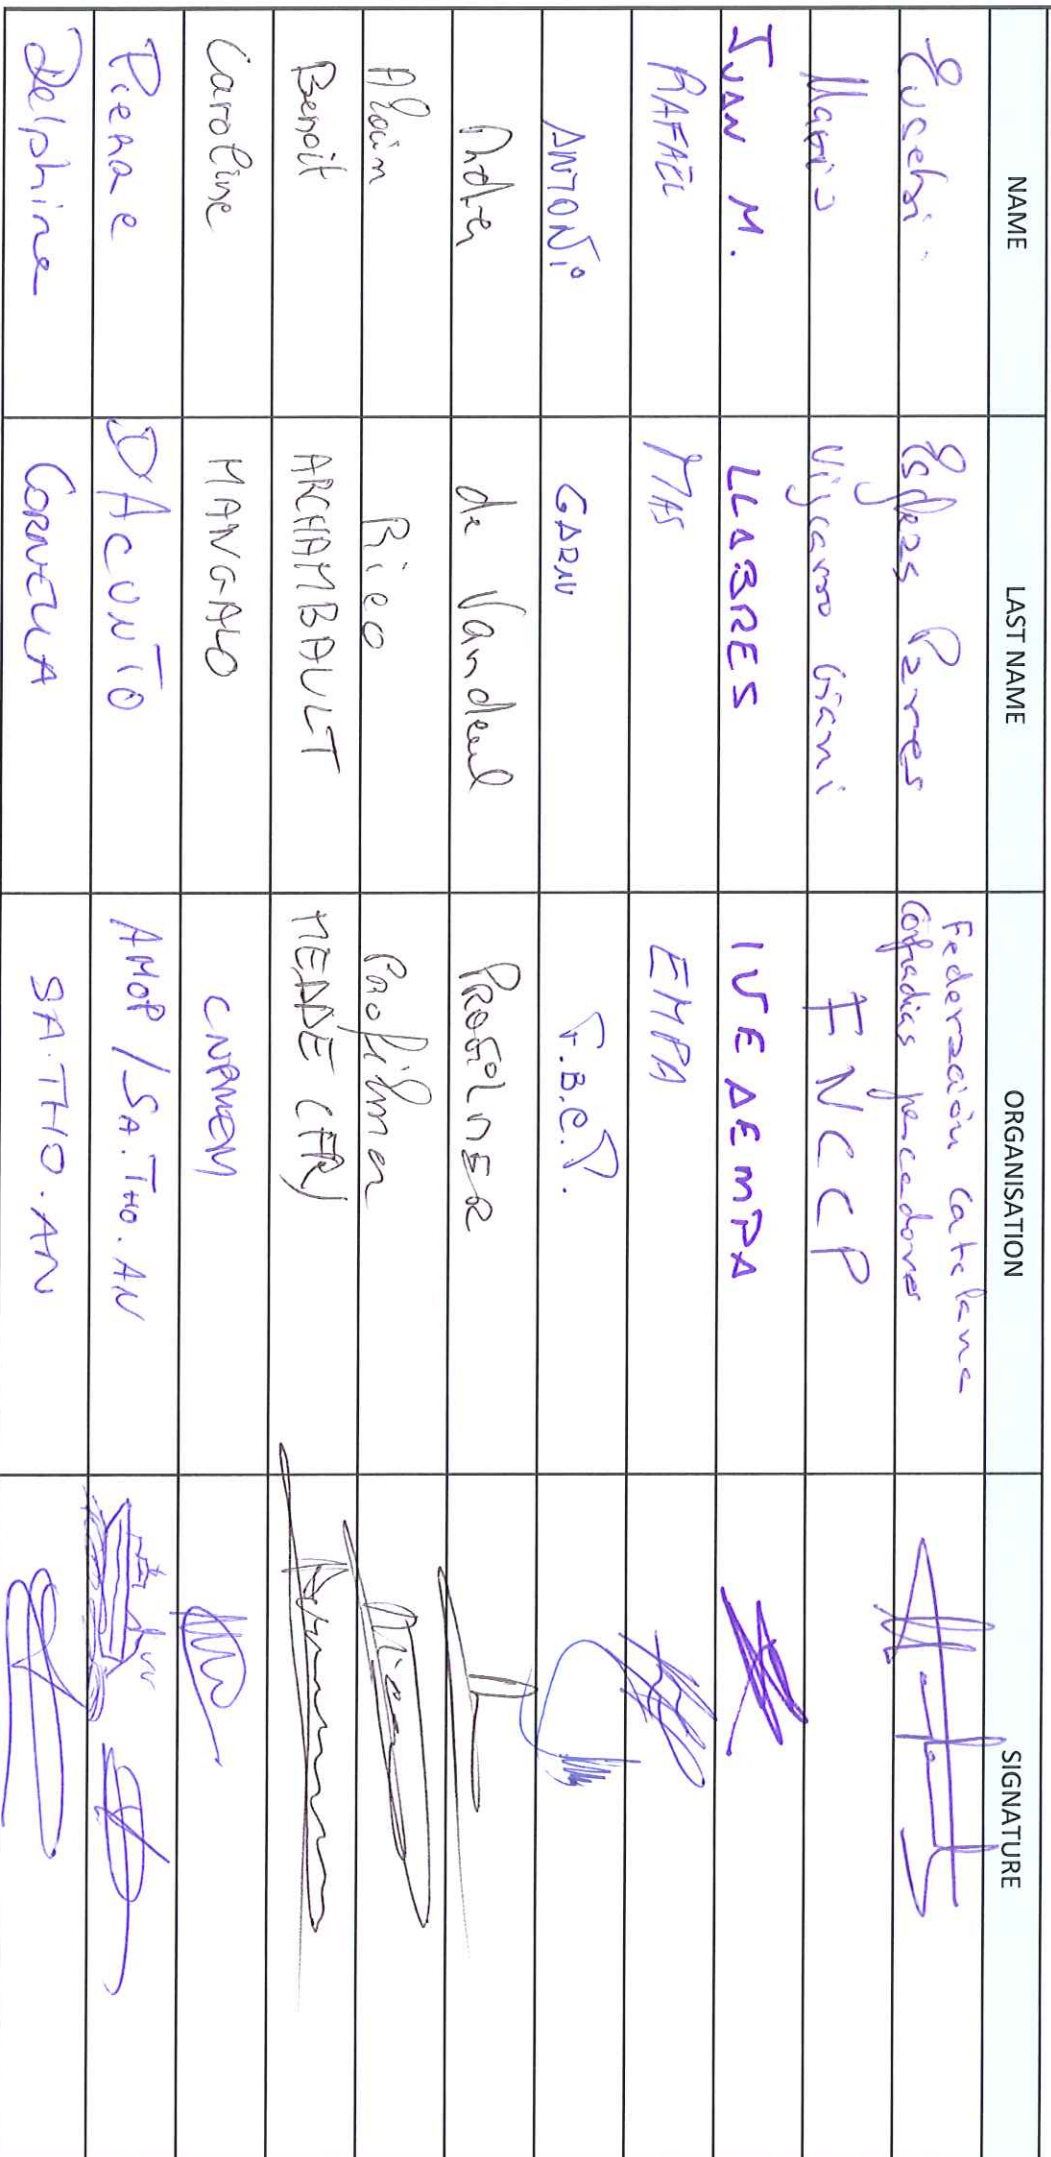 NAME LAST NAME ORGANISATION SIGNATURE
Eusebi Esgleas Parres Federación Catalana Cofradias pescadores
Mario Vizcarro Gianni FNCCP
JUAN M. LLABRES IVEAEMPA
RAFAEL MAS EMPA
ANTONI GARAU F.B.C.P.
de Vandeul PROFILMER
Alain Rico Profilmer
Benoit ARCHAMBAULT MEDDE (FR)
Caroline MANGALO CNPMEM
Pierre D'ACUNTO AMOP/SA.THO.AN
Delphine CORNELLA SA.THO.AN